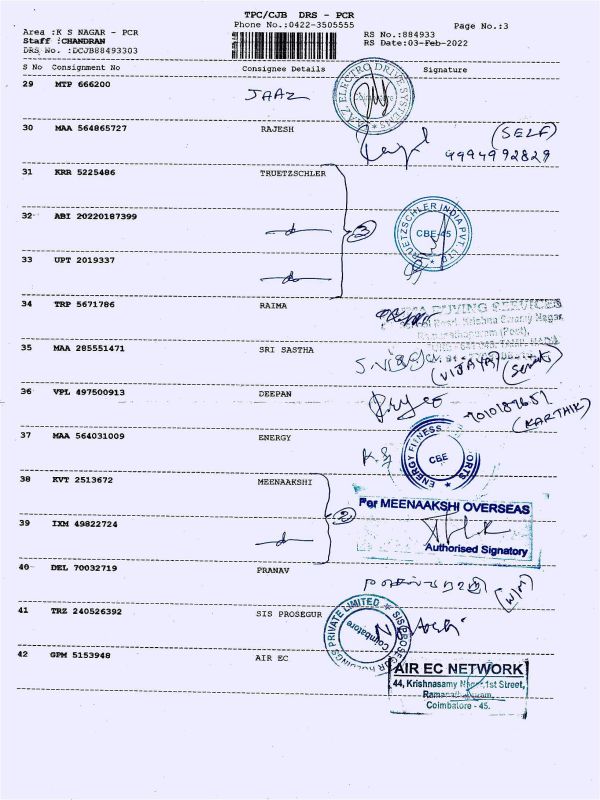 TPC/CJB DRS - PCR
Phone No.:0422-3505555
Page No.:3
Area :K S NAGAR - PCR
Staff :CHANDRAN
DRS No. :DCJB88493303
RS No.:884933
RS Date:03-Feb-2022
S No Consignment No Consignee Details Signature
29 MTP 666200 JAAZ
ELECTRO DRIVE SYSTEMS
30 MAA 564865727 RAJESH (SELF)
9994992829
31 KRR 5225486 TRUETZSCHLER
32 ABI 20220187399
3
TRUETZSCHLER INDIA PVT. LTD.
CBE-45
33 UPT 2019337
34 TRP 5671786 RAIMA
BUYING SERVICES
Road, Krishna Swamy Nagar,
(Post),
35 MAA 285551471 SRI SASTHA
(VIJAYA)
36 VPL 497500913 DEEPAN
(KARTHIK)
37 MAA 564031009 ENERGY
ENERGY FITNESS
CBE
38 KVT 2513672 MEENAAKSHI
For MEENAAKSHI OVERSEAS
39 IXM 49822724
2
Authorised Signatory
40 DEL 70032719 PRANAV
41 TRZ 240526392 SIS PROSEGUR
SIS PROSEGUR HOLDINGS PRIVATE LIMITED
Coimbatore
42 GPM 5153948 AIR EC
AIR EC NETWORK
44, Krishnasamy Nagar, 1st Street,
Coimbatore - 45.